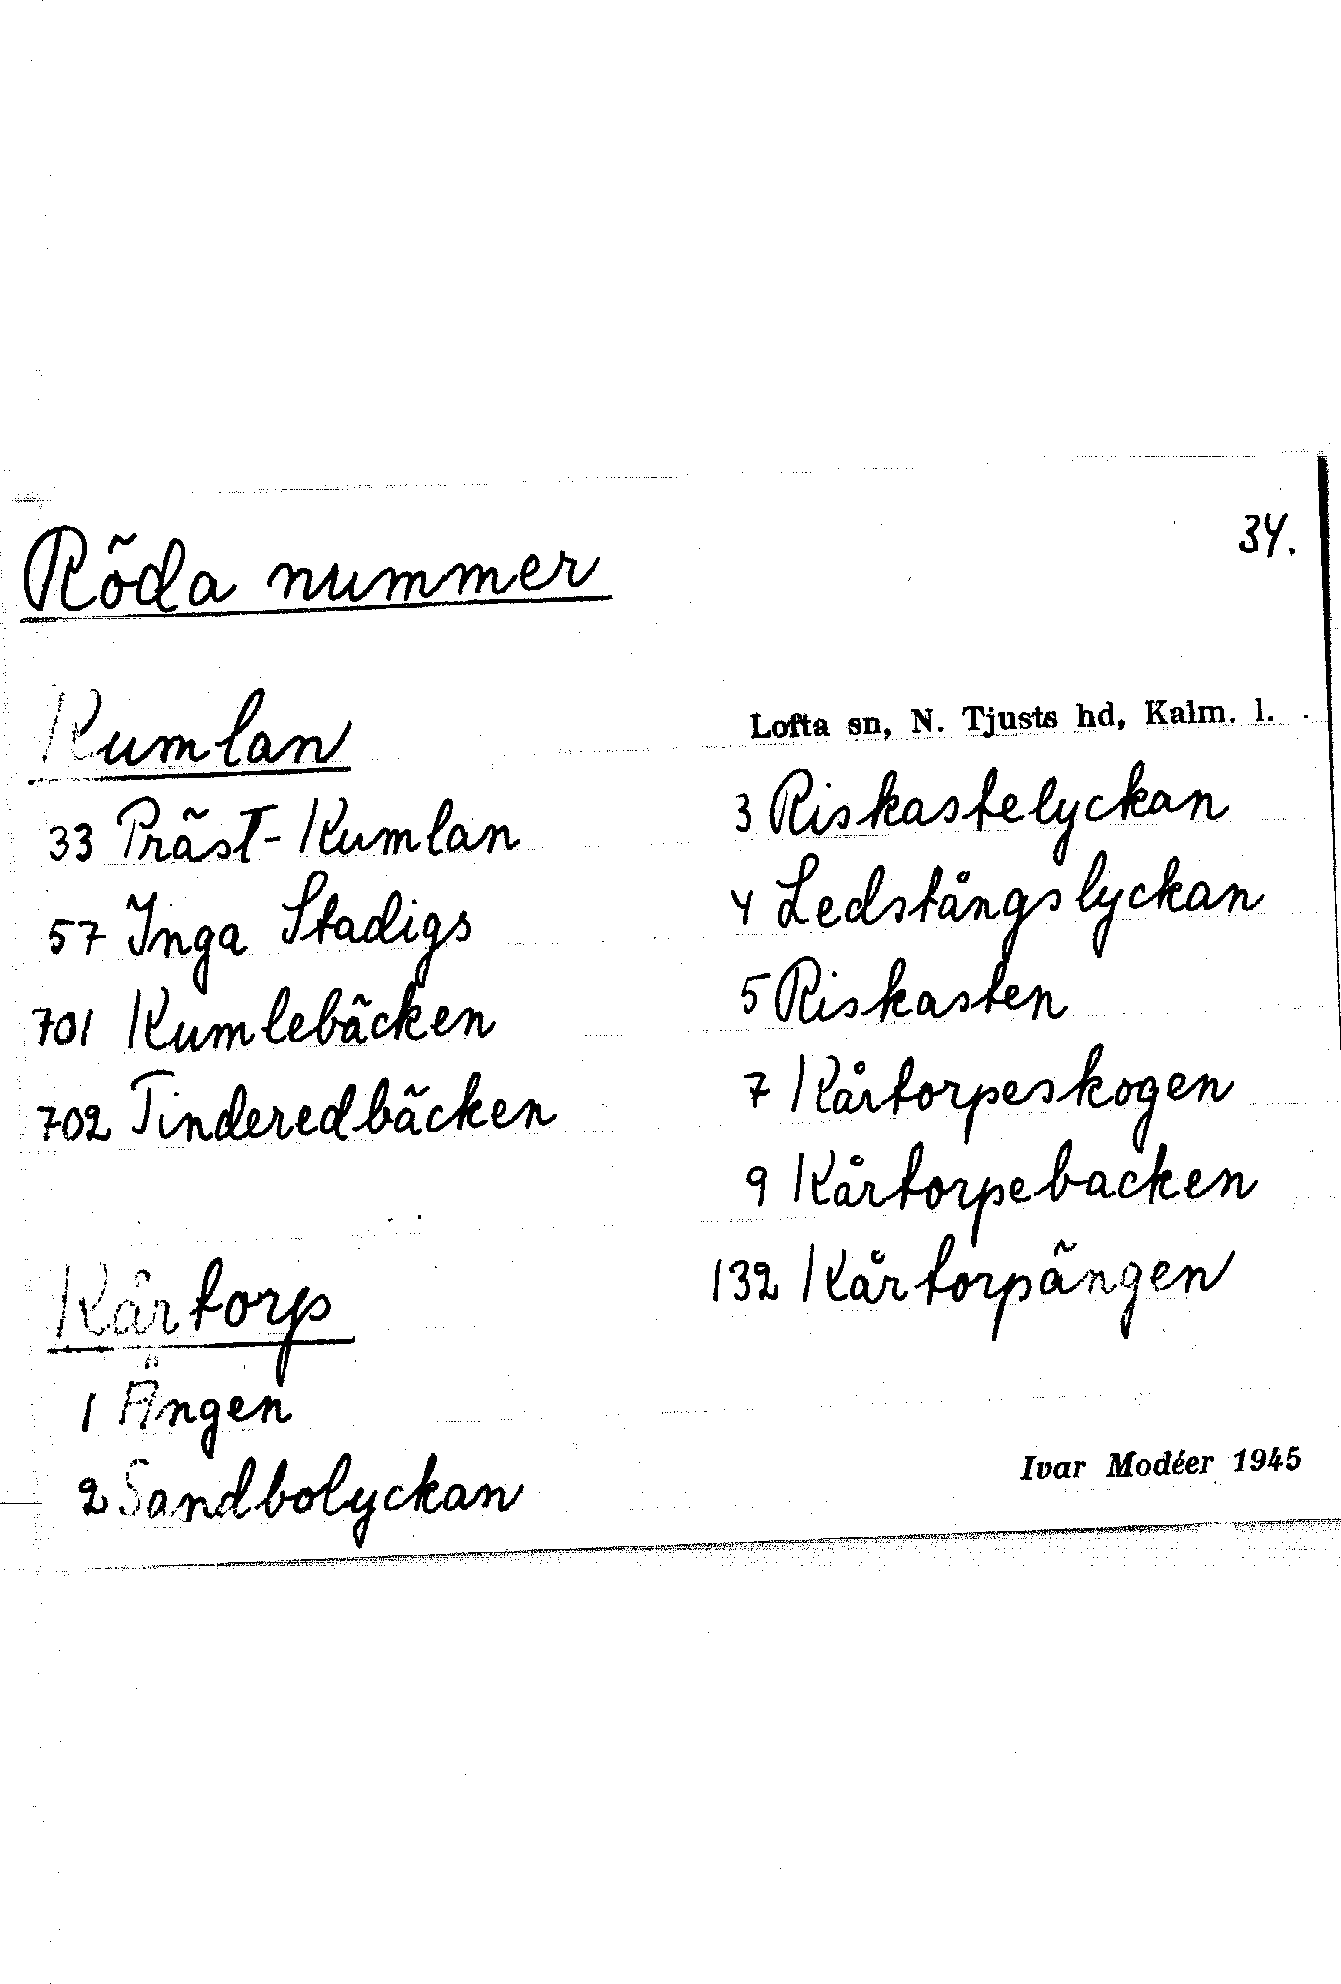 34.
Röda nummer
Kumlan
33 Präst-Kumlan
57 Inga Stadigs
701 Kumlebäcken
702 Tinderedbäcken
Kårtorp
1 Ängen
2 Sandbolyckan
Lofta sn, N. Tjusts hd, Kalm. l.
3 Riskastelyckan
4 Ledstångslyckan
5 Riskasten
7 Kårtorpeskogen
9 Kårtorpebacken
132 Kårtorpängen
Ivar Modéer 1945